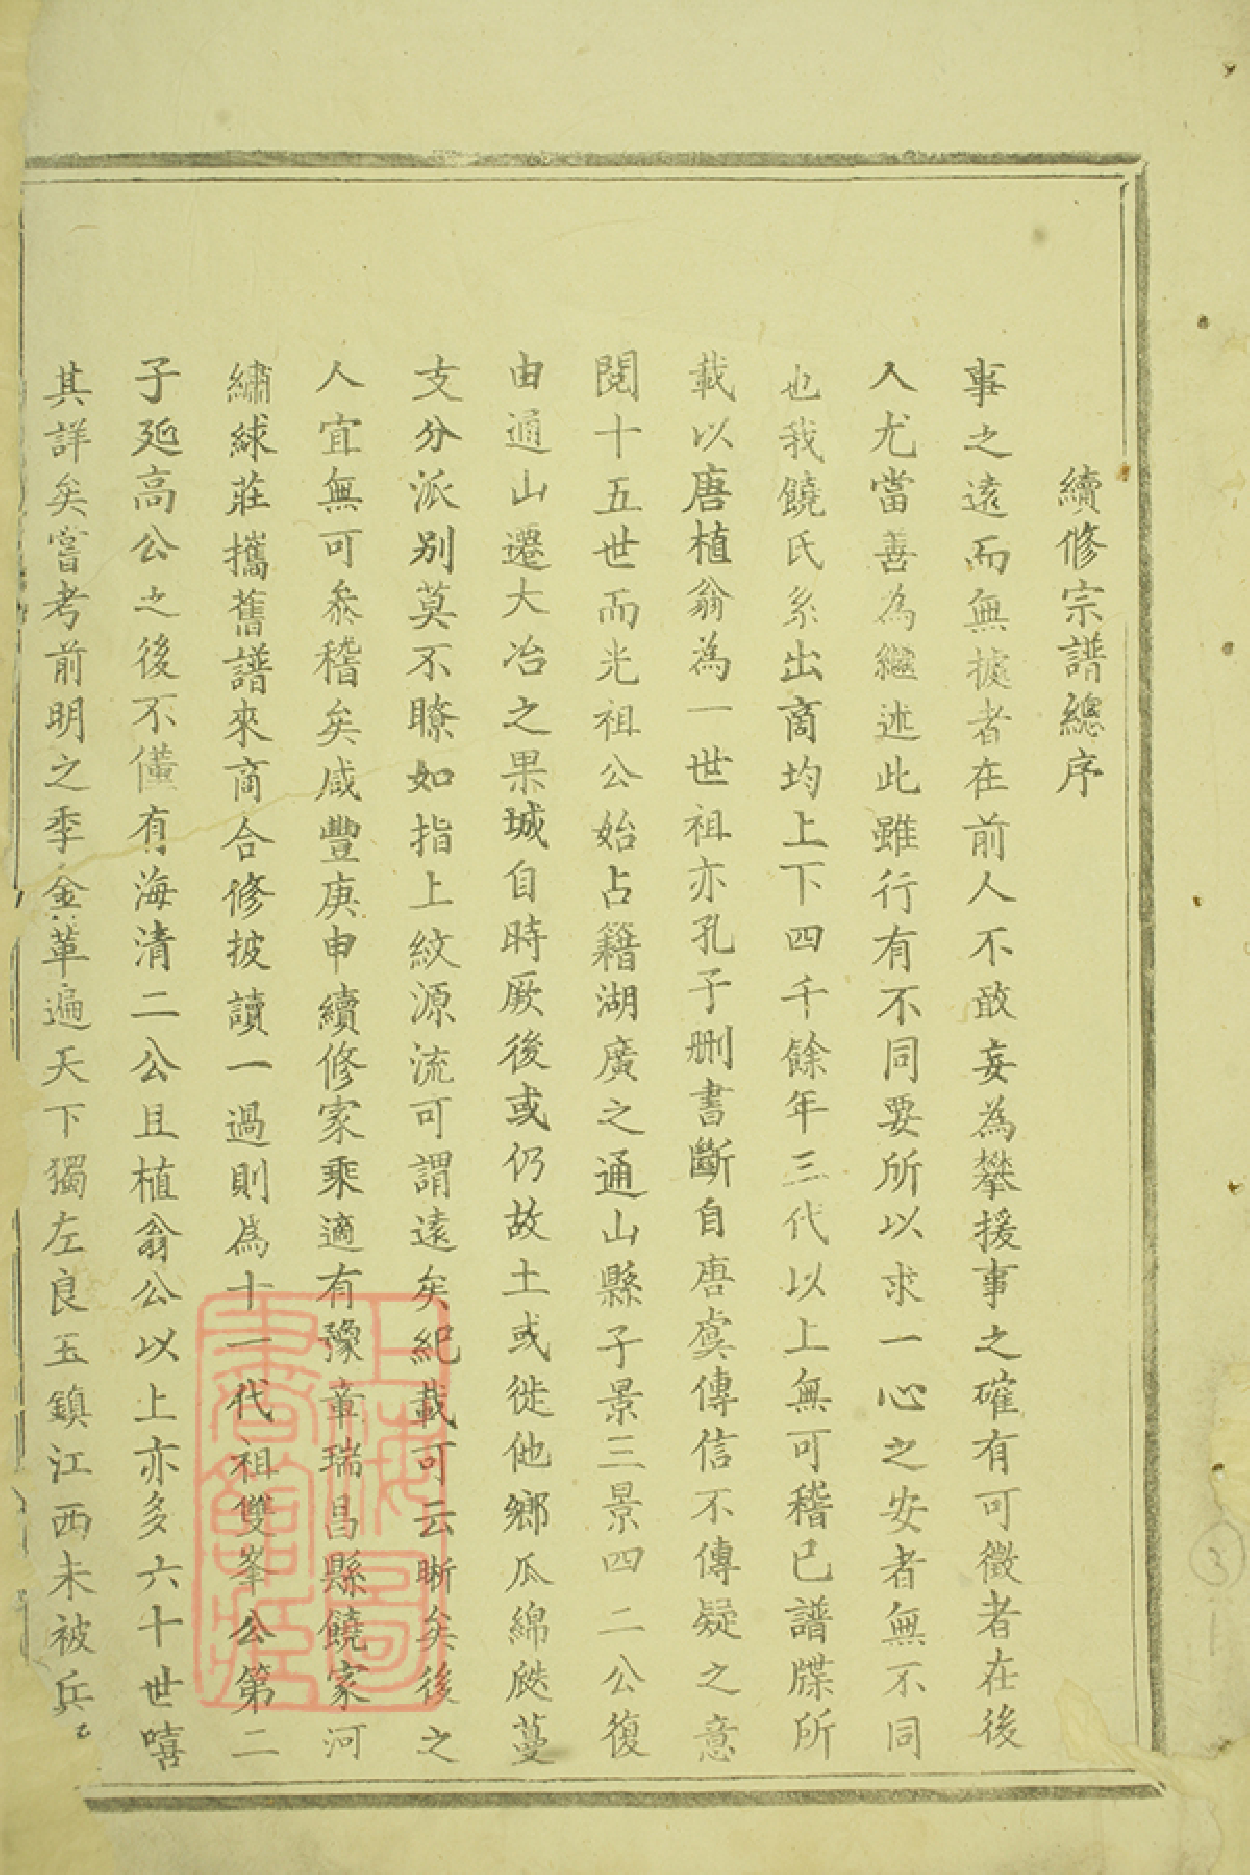 續修宗譜總序
事之遠而無據者在前人不敢妄為攀援事之確有可徵者在後
人尤當善為繼述此雖行有不同要所以求一心之安者無不同
也我饒氏系出商均上下四千餘年三代以上無可稽已譜牒所
載以唐植翁為一世祖亦孔子删書斷自唐虞傳信不傳疑之意
閱十五世而光祖公始占籍湖廣之通山縣子景三景四二公復
由通山遷大冶之果城自時厥後或仍故土或徙他鄉瓜綿瓞蔓
支分派別莫不瞭如指上紋源流可謂遠矣紀載可云晰矣後之
人宜無可叅稽矣咸豐庚申續修家乘適有豫章瑞昌縣饒家河
繡球莊攜舊譜來商合修披讀一過則爲十一代祖雙峯公第二
子延高公之後不僅有海清二公且植翁公以上亦多六十世嘻
其詳矣嘗考前明之季金革遍天下獨左良玉鎮江西未被兵
上海圖書館藏
3